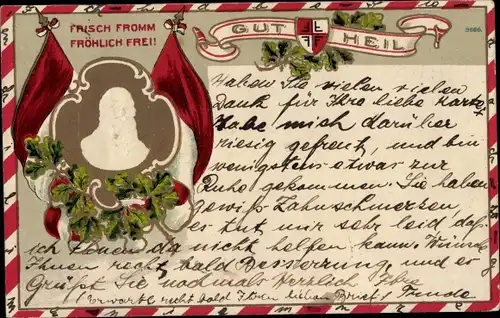 FRISCH FROMM
FRÖHLICH FREI!
GUT HEIL
Haben Sie vielen vielen
Dank für Ihre liebe Karte
Habe mich darüber
riesig gefreut, und bin
wenigstens etwas zur
Ruhe gekommen. Sie haben
gewiß Zahnschmerzen,
es tut mir sehr leid, daß
ich Ihnen da nicht helfen kann. Wünsche
Ihnen recht bald Besserung, und es
Grüßt Sie nochmals Herzlich Ihre
(Erwarte recht bald Ihren lieben Brief) Freude